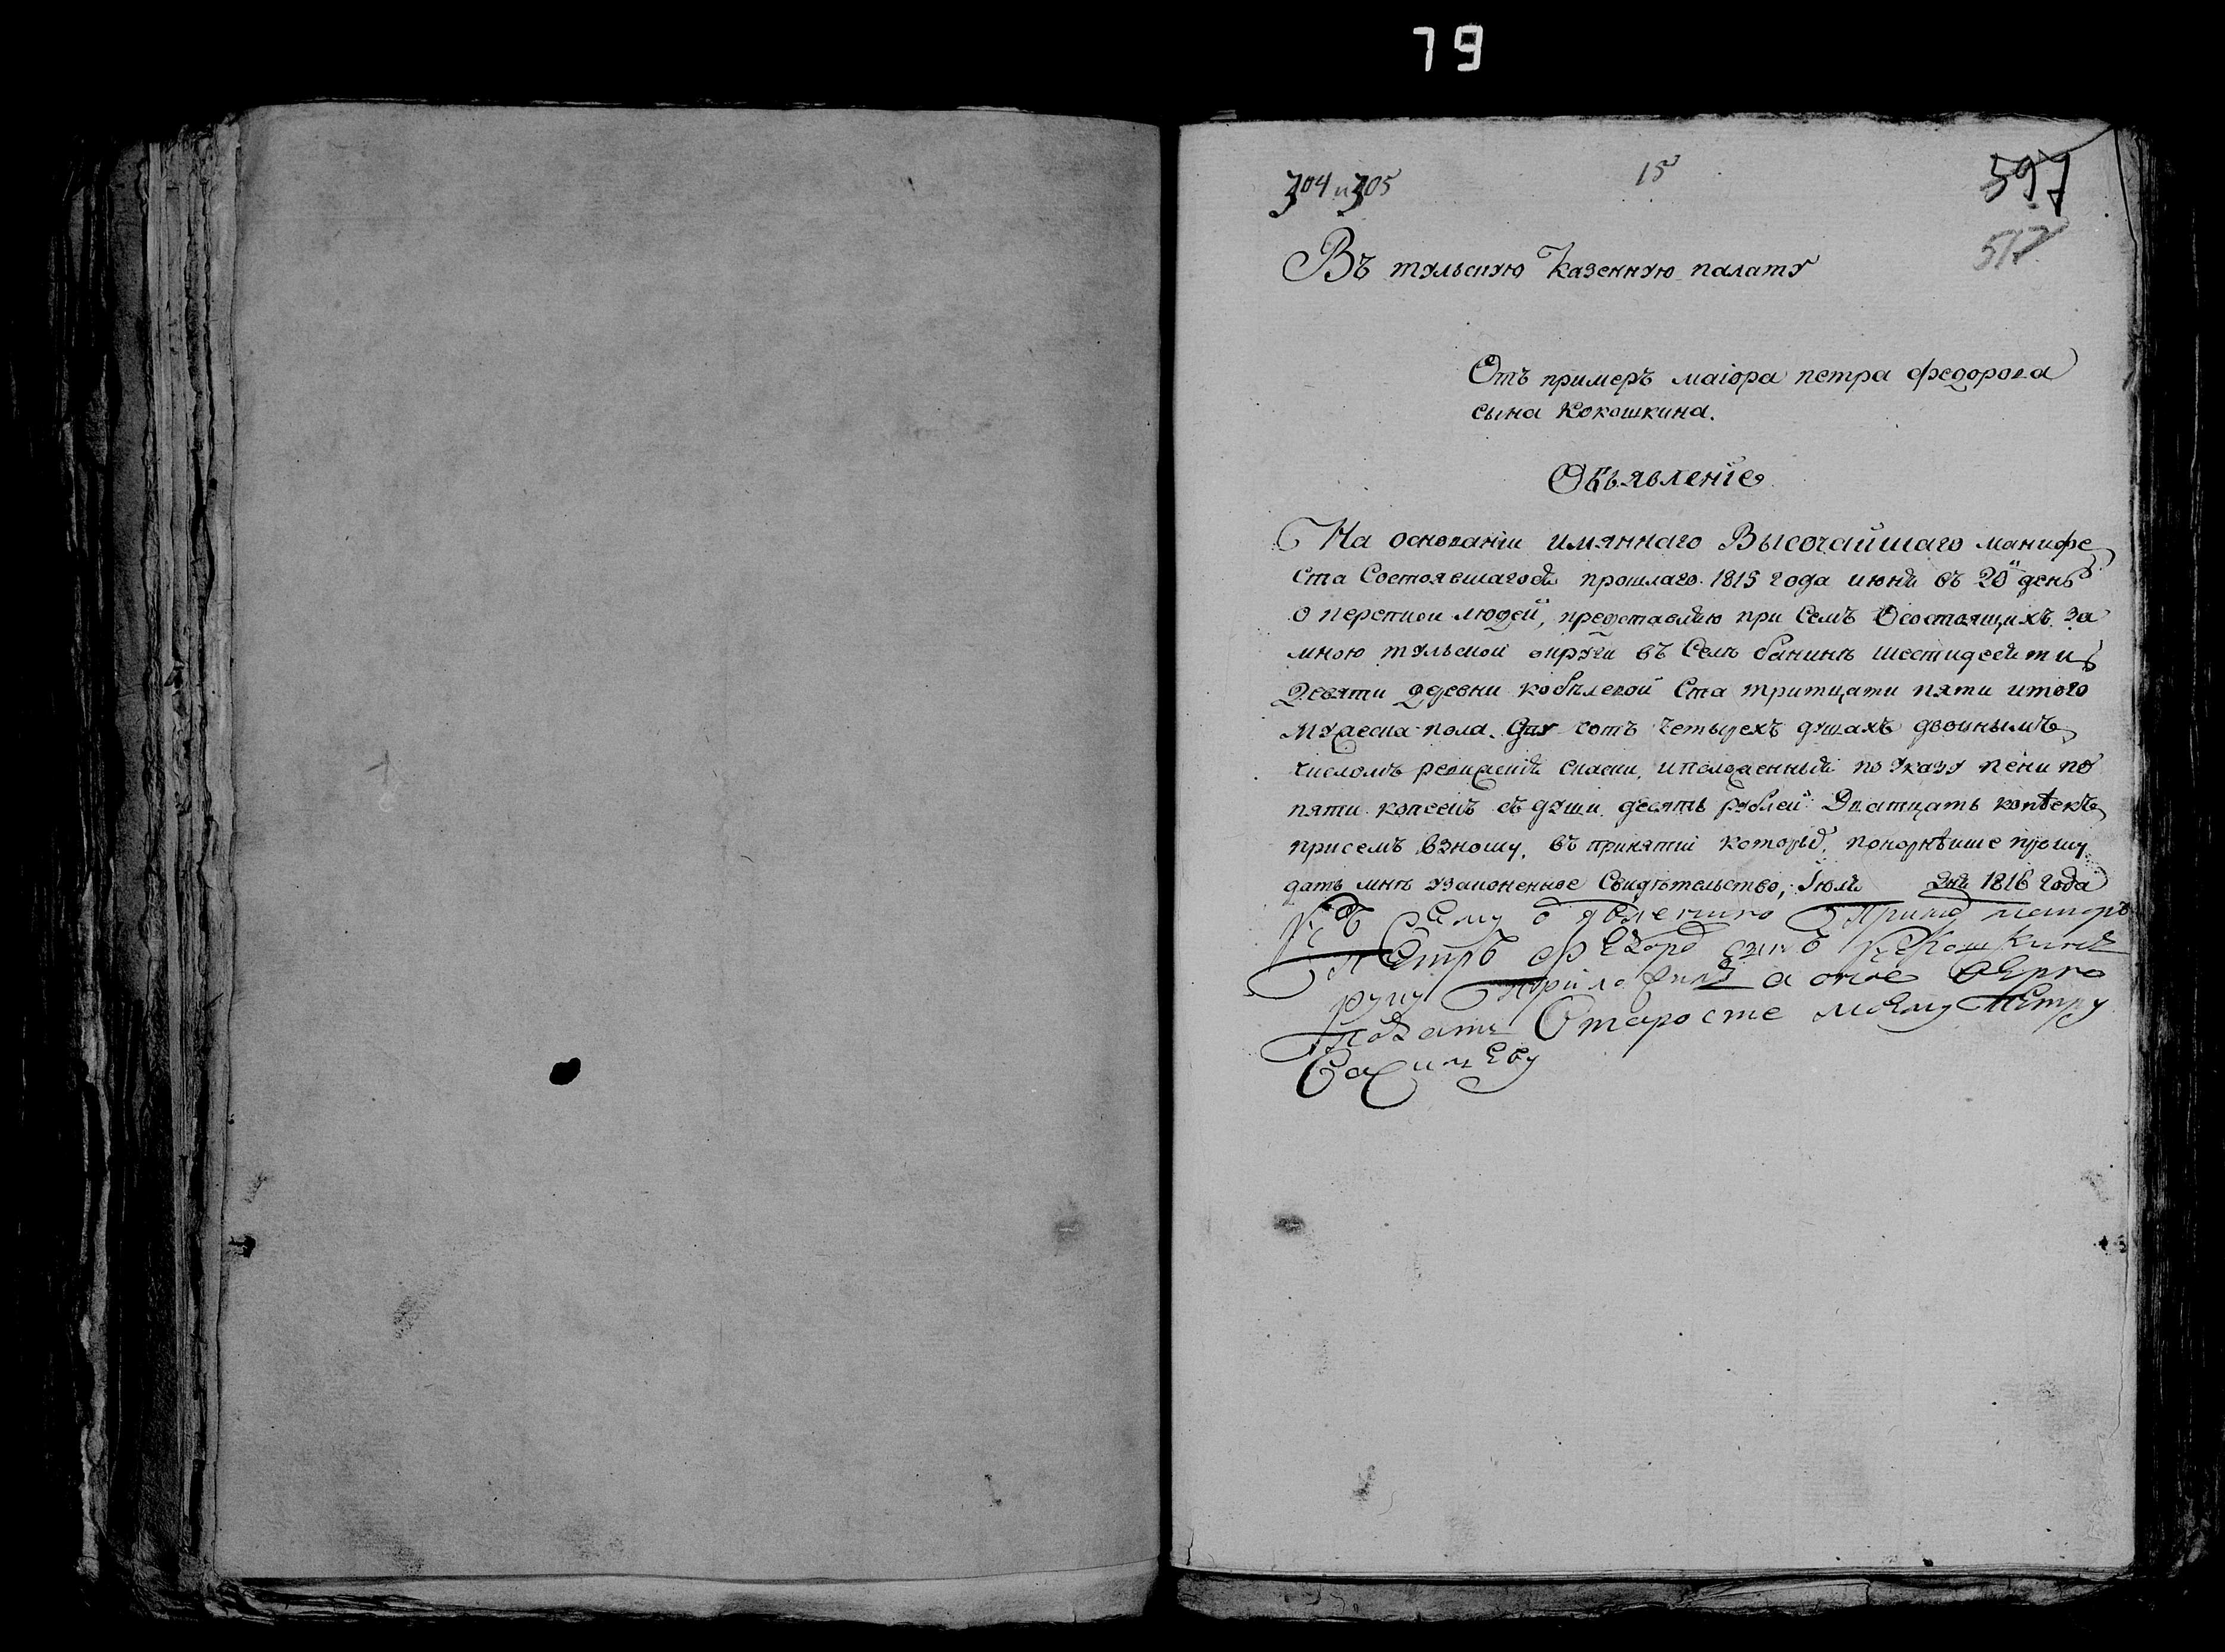 79
304 и 305
15
597
517
Въ тульскую Казенную палату
Отъ примеръ маіора петра федорова
сына Кокошкина.
Объявленіе
На основаніи имяннаго Высочайшаго манифе
ста Состоявшагося прошлаго 1815 года июня въ 20й день
о переписи людей, представляю при Семъ Осостоящихъ за
мною тульской округи въ Селе банине шестидесяти
Девяти Здревни кобылевой Ста тритцати пяти итого
мужеска пола Двух сотъ Четырехъ душахъ двоинымъ
числомъ ревижскія сказки, иположенныя по указу пени по
пяти копеекъ съ души десять рублей Дватцать копѣекъ
присемъ взношу, въ принятіи которыхъ покорнѣише прошу
дать мнѣ узаконенное Свидѣтельство, Іюля дня 1816 года
Къ сему объявлению Примеръ маиоръ
Петръ Федоровъ сынъ Кокошкинъ
руку приложилъ а оное верю
подать Старосте моему Петру